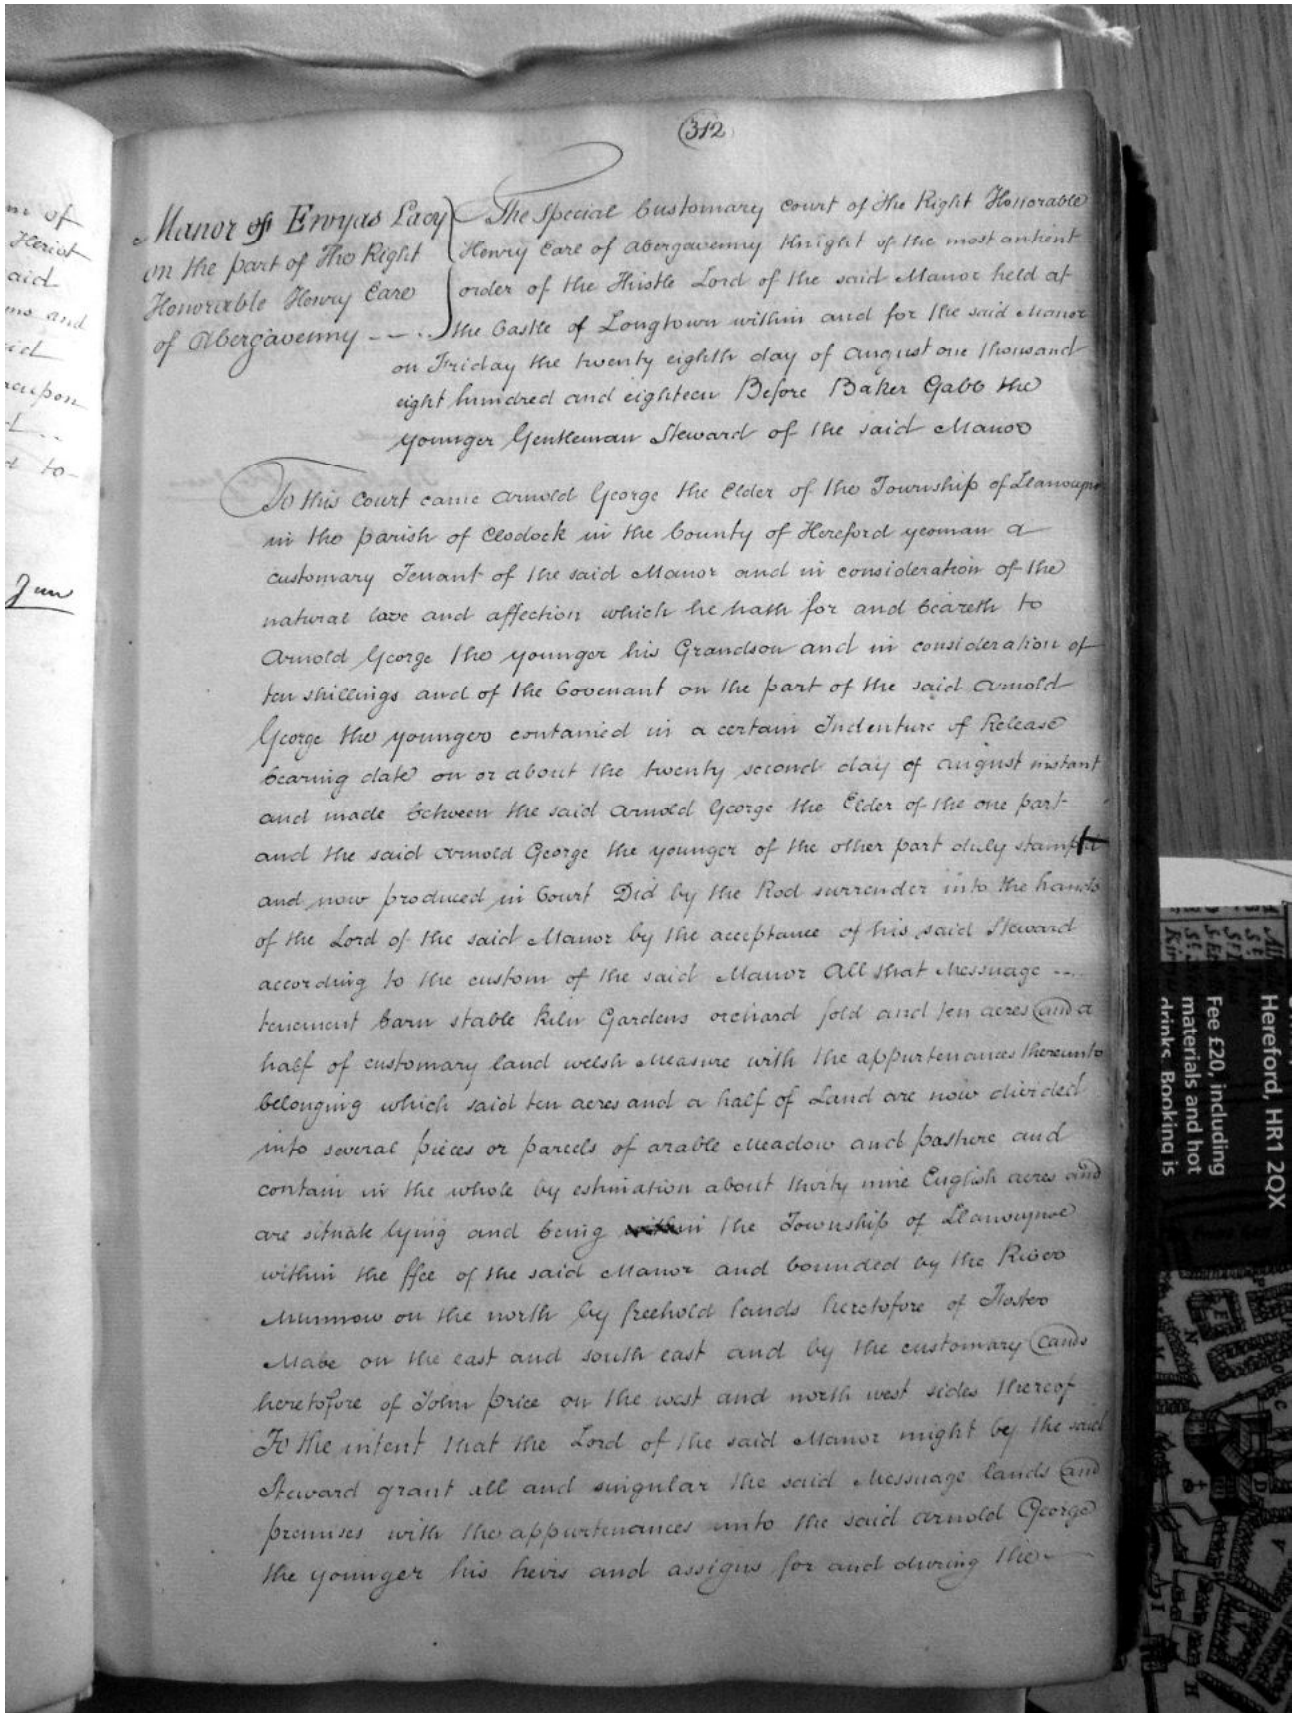 (312)
Manor of Ewyas Lacy
on the part of The Right
Honorable Henry Earl
of Abergavenny - - . .
The Special Customary Court of the Right Honorable
Henry Earl of Abergavenny Knight of the most antient
order of the Thistle Lord of the said Manor held at
the Castle of Longtown within and for the said Manor
on Friday the twenty eighth day of August one thousand
eight hundred and eighteen Before Baker Gabb the
younger Gentleman Steward of the said Manor
To this Court came Arnold George the Elder of the Township of
in the parish of Clodock in the County of Hereford yeoman a
customary Tenant of the said Manor and in consideration of the
natural love and affection which he hath for and beareth to
Arnold George the younger his Grandson and in consideration of
ten shillings and of the Covenant on the part of the said Arnold
George the younger contained in a certain Indenture of Release
bearing date on or about the twenty second day of August instant
and made between the said Arnold George the Elder of the one part
and the said Arnold George the younger of the other part duly stampt
and now produced in Court Did by the Rod surrender into the hands
of the Lord of the said Manor by the acceptance of his said Steward
according to the custom of the said Manor All that Messuage - - - -
tenement barn stable kiln Gardens orchard fold and ten acres and a
half of customary land welsh Measure with the appurtenances thereunto
belonging which said ten acres and a half of Land are now divided
into several pieces or parcels of arable Meadow and pasture and
contain in the whole by estimation about thirty nine English acres and
are situate lying and being in the Township of Llanveynoe
within the ffee of the said Manor and bounded by the River
Munnow on the north by freehold lands heretofore of Foster
Mabe on the east and south east and by the customary lands
heretofore of John price on the west and north west sides thereof
To the intent that the Lord of the said Manor might by the said
Steward grant all and singular the said Messuage lands and
premises with the appurtenances unto the said Arnold George
the younger his heirs and assigns for and during the
of
Heriot
aid
ms and
aid
t - -
to -
Jun
Hereford, HR1 2QX
Fee £20, including
materials and hot
drinks. Booking is